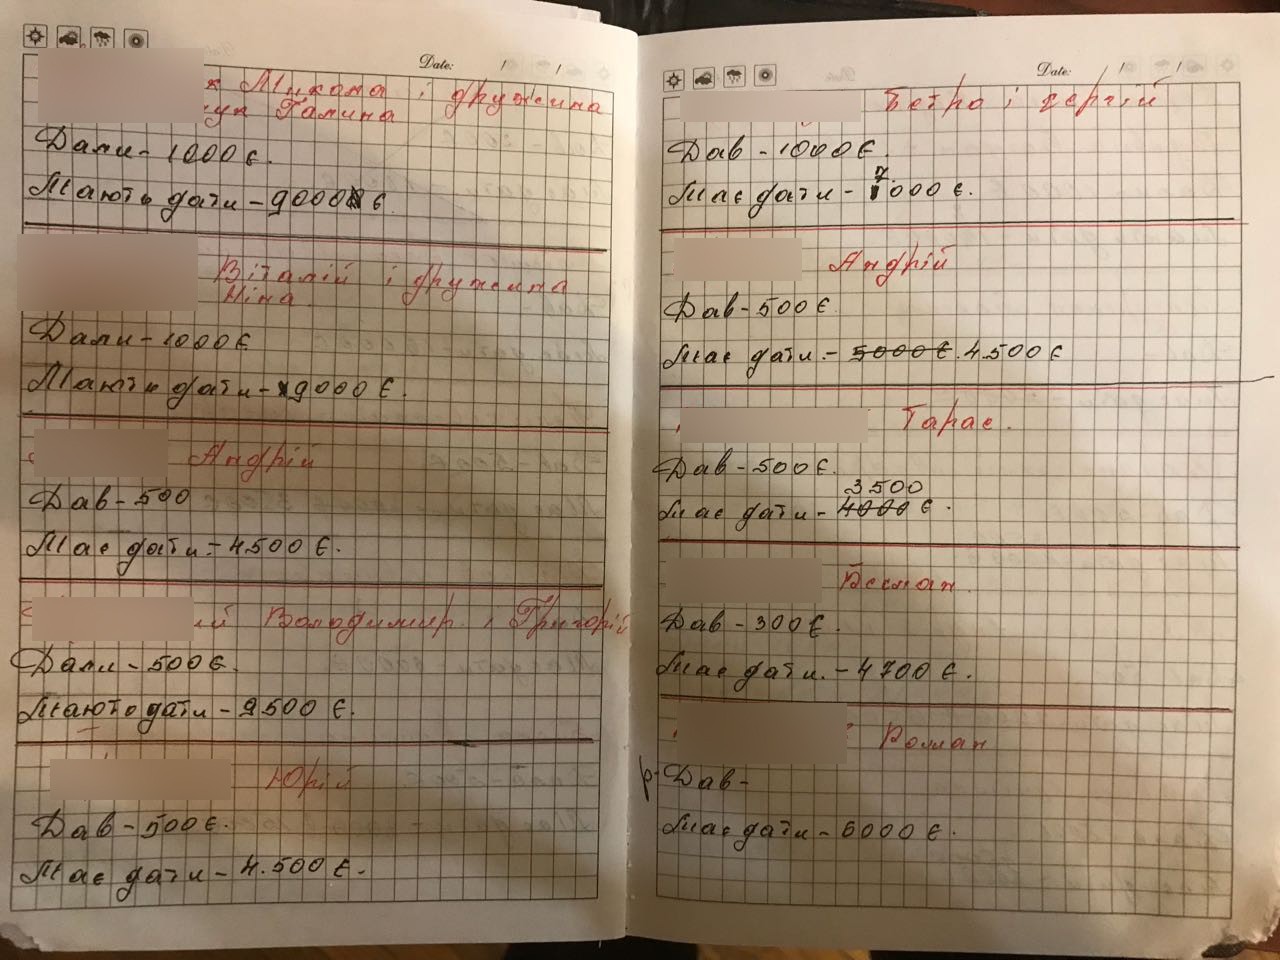 Date: / /
Микола і дружина
Галина
Дали - 1000 €.
Мають дати - 9000 €.
Віталій і дружина
Ніна.
Дали - 1000 €
Мають дати - 9000 €.
Андрій
Дав - 500
Має дати - 4.500 €.
ий Володимир. і Григорій
Дали - 500 €.
Мають дати - 9500 €.
Юрій
Дав - 500 €.
Має дати - 4.500 €.
Date: / /
Петро і Сергій
Дав - 1000 €.
Має дати - 7000 €.
Андрій
Дав - 500 €
Має дати - 5000 €. 4.500 €
Тарас.
Дав - 500 €.
3500
Має дати - 4000 €.
Дав - 300 €.
Має дати. - 4700 €.
й Роман
р. Дав -
Має дати - 6000 €.